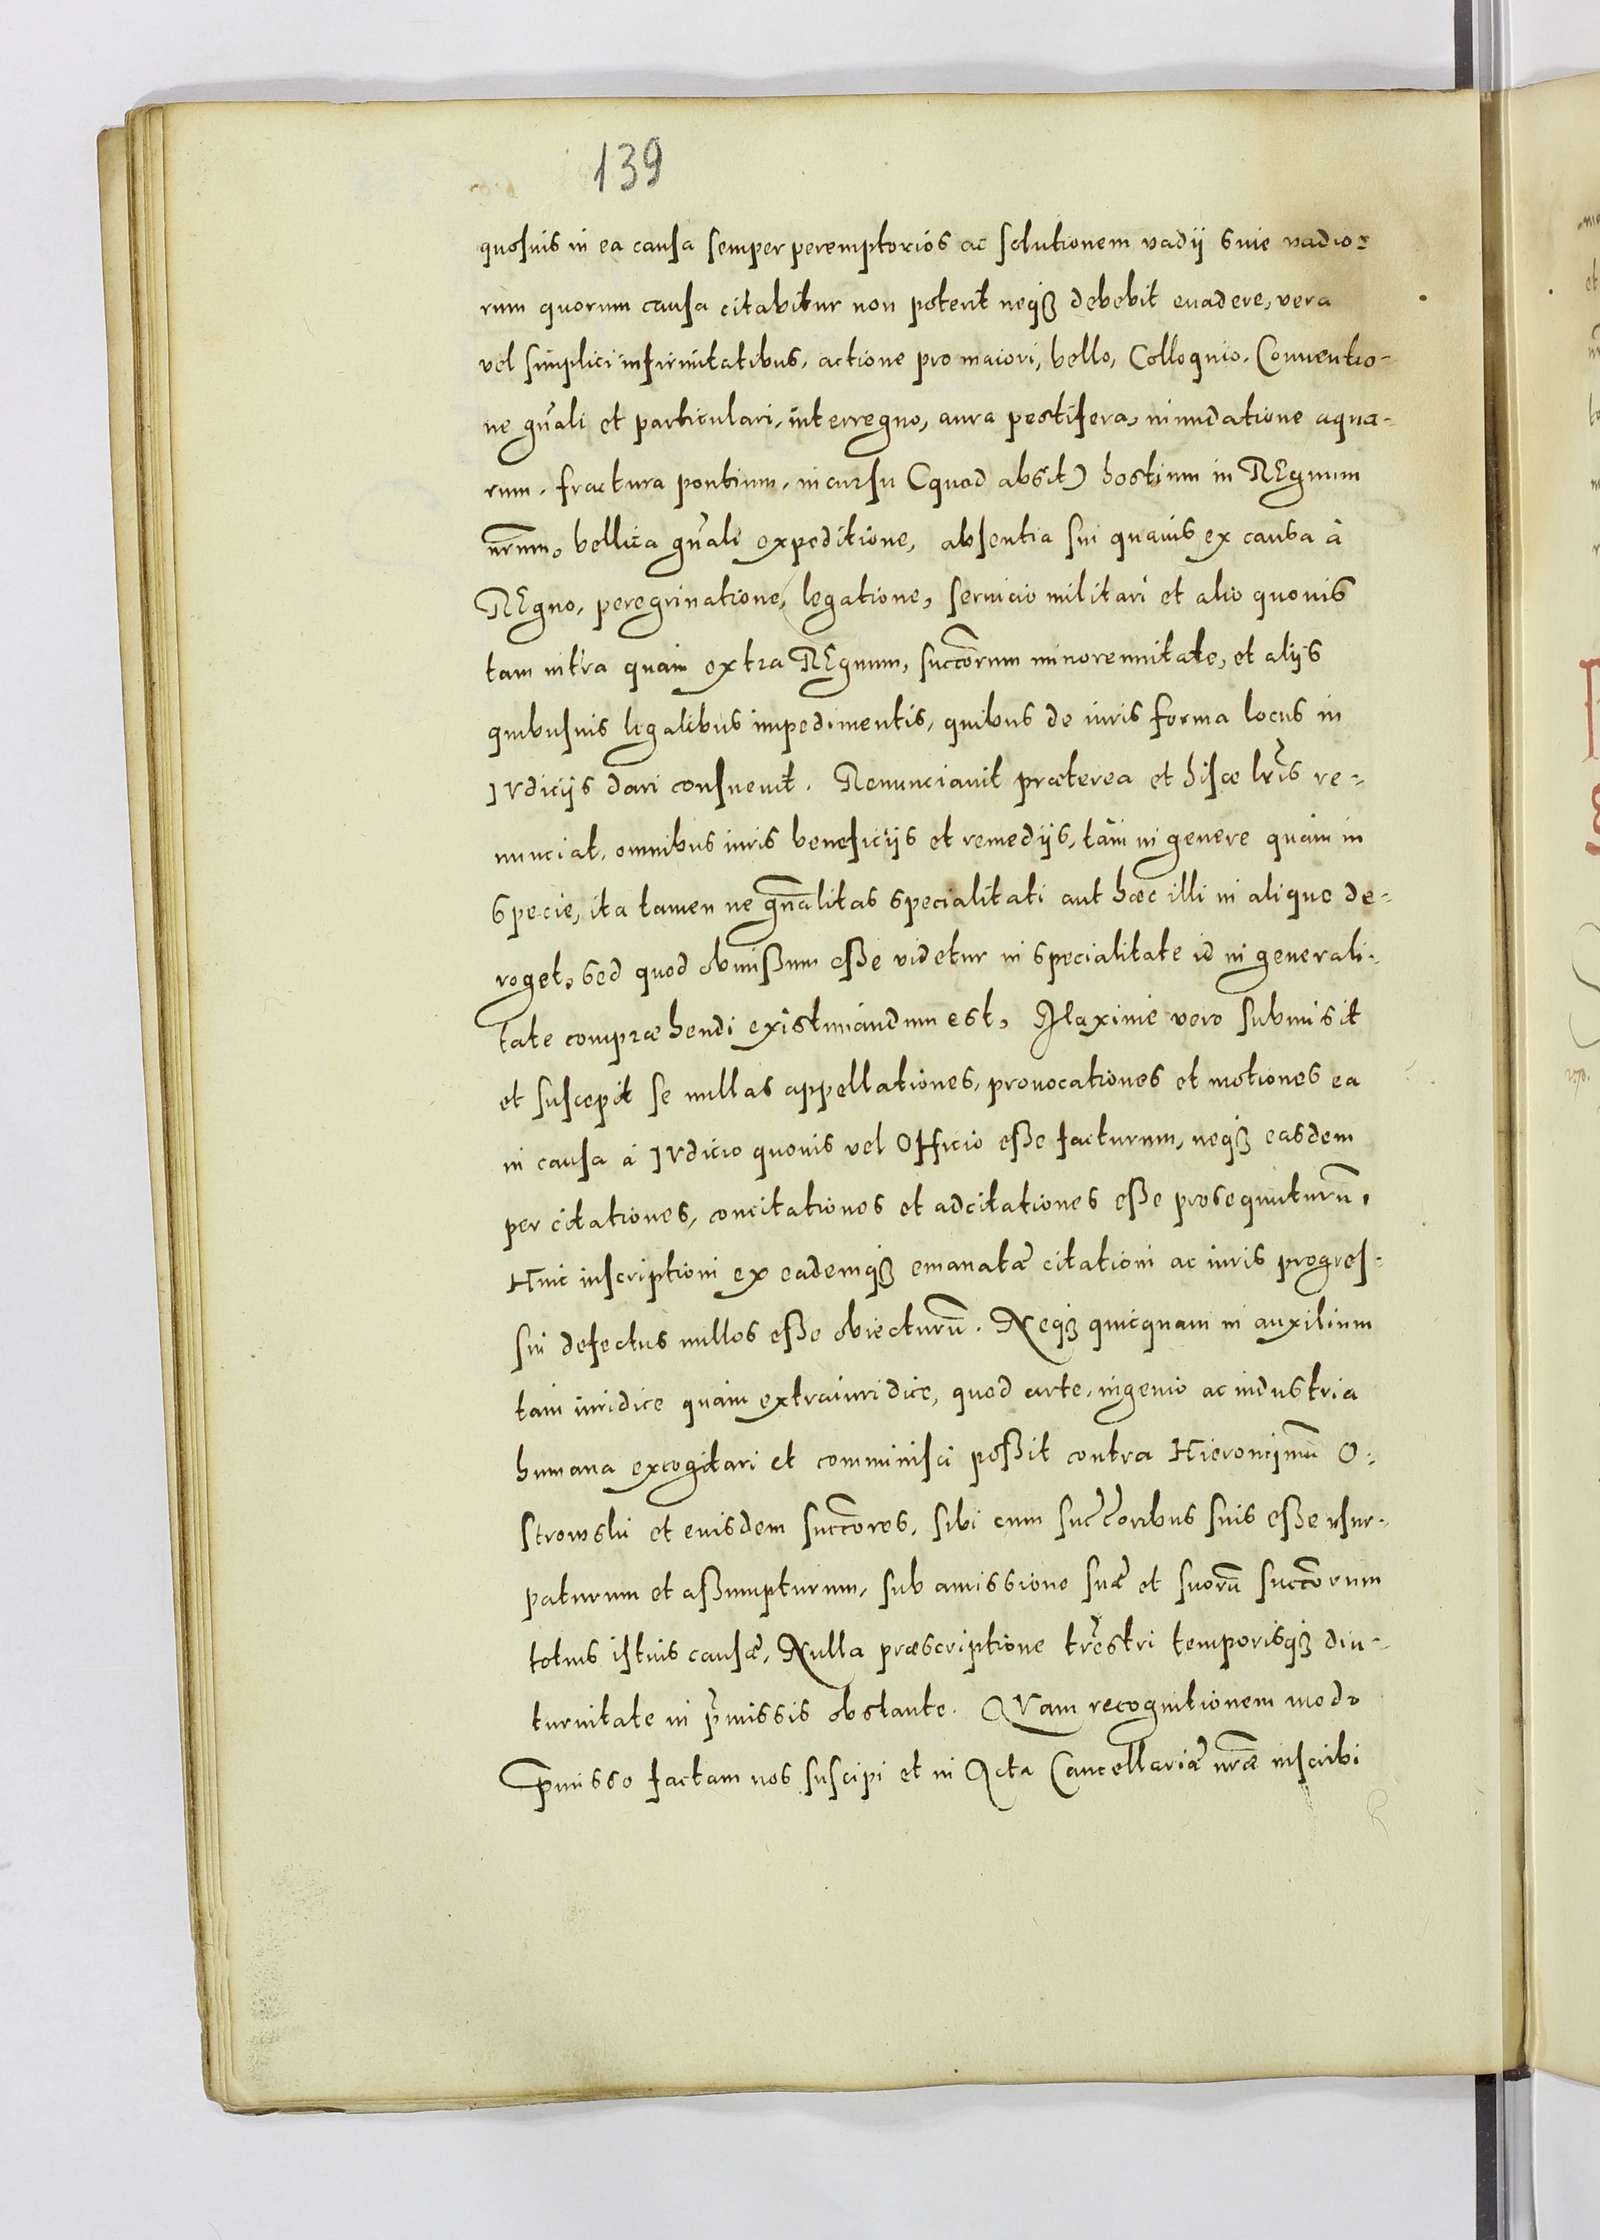 139
quosuis in ea causa semper peremptorios ac solutionem vadij siue vadio-
rum quorum causa citabitur non poterit neqꝫ debebit euadere, vera
vel simplici infirmitatibus, actione pro maiori, bello, Colloquio, Conuentio-
ne gn̄ali et particulari, interregno, aura pestifera, inundatione aqua-
rum, fractura pontium, incursu (quod absit) hostium in REgnum
nr̄um, bellica gn̄ali expeditione, absentia sui quauis ex causa à
REgno, peregrinatione, legatione, seruicio militari et alio quouis
tam intra quam extra REgnum, succ̄orum minorennitate, et alijs
quibusuis legalibus impedimentis, quibus de iuris forma locus in
IVdicijs dari consueuit. Renunciauit præterea et hisce lr̄is re-
nunciat, omnibus iuris beneficijs et remedijs, tam in genere quam in
specie, ita tamen ne gn̄alitas specialitati aut hæc illi in aliquo de-
roget, sed quod obmißum eße videtur in specialitate id in generali-
tate compræhendi existimandum est, Maxime vero submisit
et suscepit se nullas appellationes, prouocationes et motiones ea
in causa à IVdicio quouis vel Officio eße facturum, neqꝫ easdem
per citationes, concitationes et adcitationes eße prosequuturū,
Huic inscriptioni ex eademqꝫ emanatæ citationi ac iuris progres-
sui defectus nullos eße obiecturū. Neqꝫ quicquam in auxilium
tam iuridice quam extraiuridice, quod arte, ingenio ac industria
humana excogitari et comminisci poßit contra Hieronimū O-
strowski et euisdem succ̄ores, sibi cum succ̄oribus suis eße vsur-
paturum et aßumpturum, sub amissione suæ et suorū succ̄orum
totius istius causæ, Nulla præscriptione trr̄estri temporisqꝫ diu-
turnitate in p̄missis obstante. QVam recognitionem modo
p̄misso factam nos suscipi et in Acta Cancellariæ nr̄æ inscribi